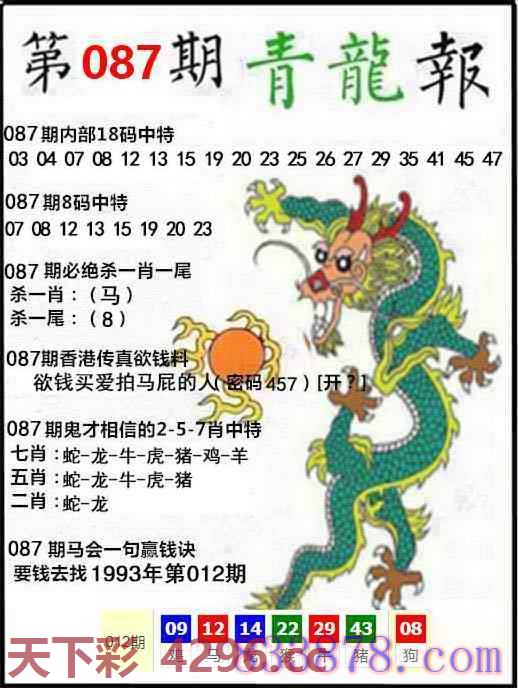 第087期青龍報
087期内部18码中特
03 04 07 08 12 13 15 19 20 23 25 26 27 29 35 41 45 47
087期8码中特
07 08 12 13 15 19 20 23
087期必绝杀一肖一尾
杀一肖：（马）
杀一尾：（8）
087期香港传真欲钱料
欲钱买爱拍马屁的人(密码457)[开？]
087期鬼才相信的2-5-7肖中特
七肖：蛇-龙-牛-虎-猪-鸡-羊
五肖：蛇-龙-牛-虎-猪
二肖：蛇-龙
087期马会一句赢钱诀
要钱去找1993年第012期
012期 09 12 14 22 29 43 08
鸡 马 龙 猴 牛 猪 狗
天下彩